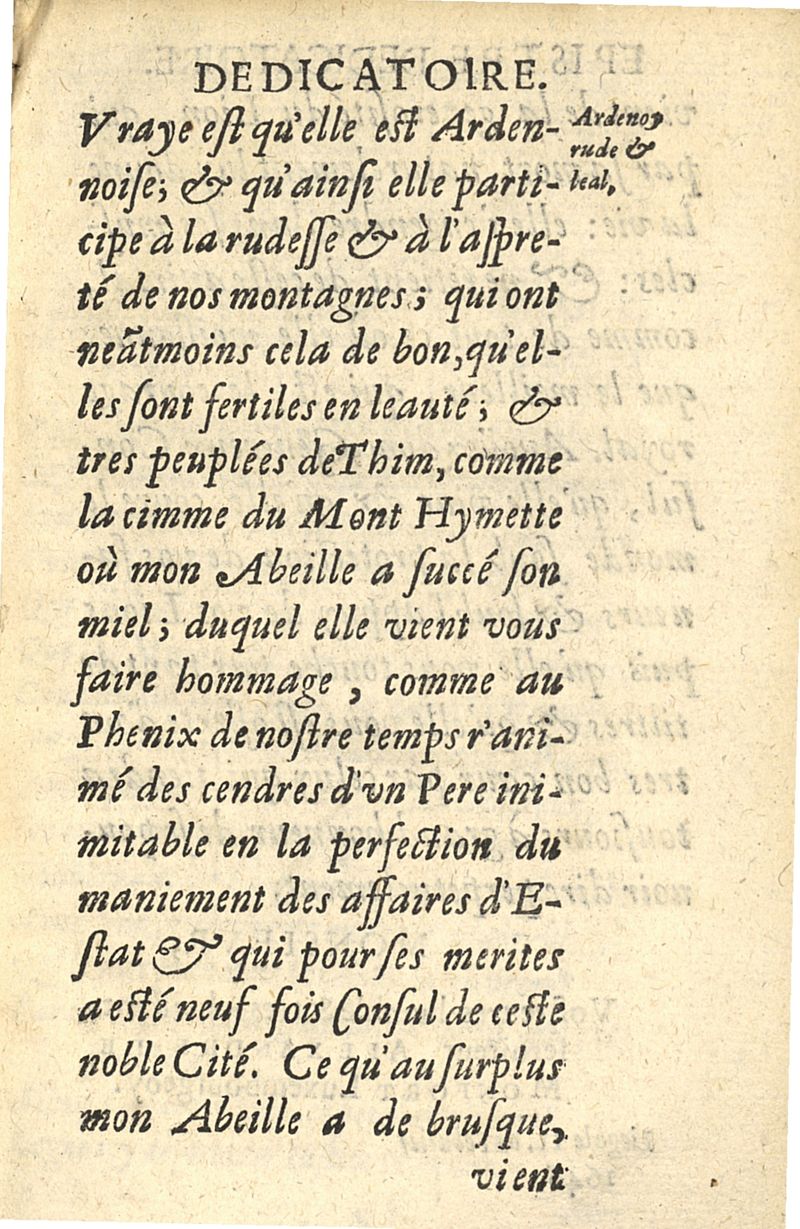 DEDICATOIRE.
Vraye eſt qu'elle est Arden-
noiſe; & qu'ainſi elle parti-
cipe à la rudeſſe & à l'aſpre-
té de nos montagnes; qui ont
neãtmoins cela de bon, qu'el-
les ſont fertiles en leauté; &
tres peuplées de Thim, comme
la cimme du Mont Hymette
où mon Abeille a ſuccé ſon
miel; duquel elle vient vous
faire hommage, comme au
Phenix de noſtre temps r'ani-
mé des cendres d'vn Pere ini-
mitable en la perfection du
maniement des affaires d'E-
ſtat & qui pour ſes merites
a esté neuf fois Conſul de ceste
noble Cité. Ce qu'au ſurplus
mon Abeille a de bruſque,
vient
Ardenoy
rude &
leal.